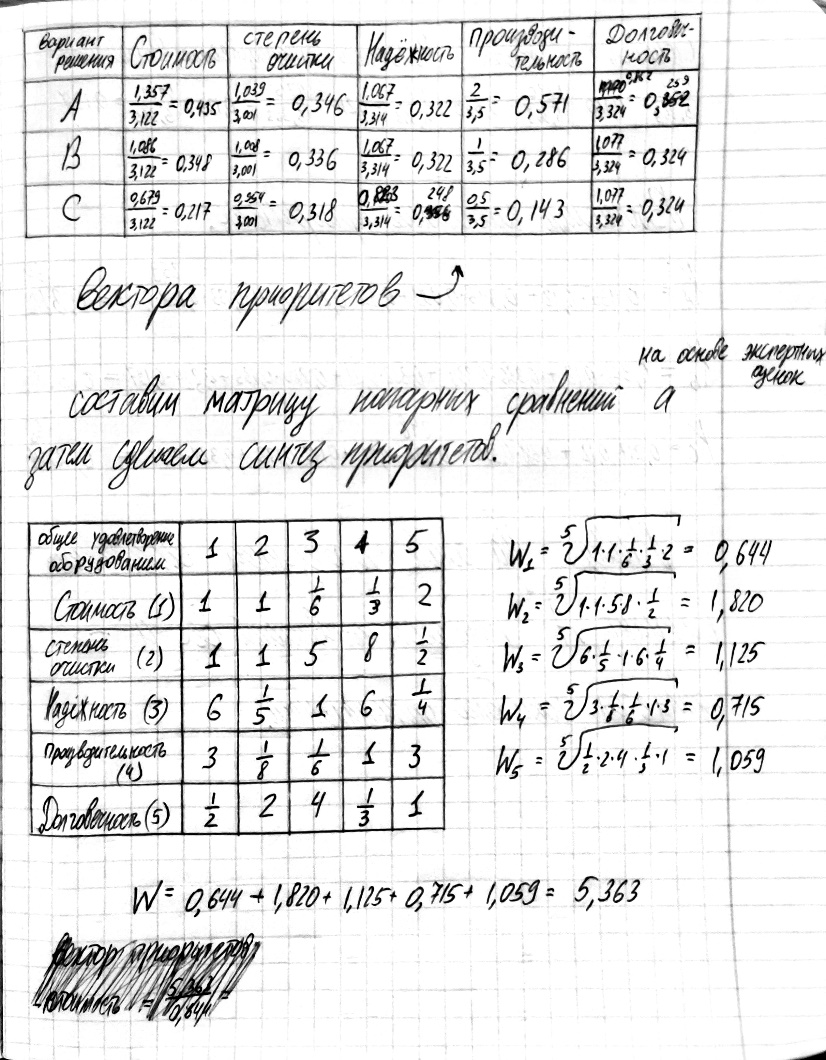 Вариант решения | Стоимость | степень очистки | Надёжность | Производительность | Долговечность
A | 1,357/3,122 = 0,435 | 1,039/3,001 = 0,346 | 1,067/3,314 = 0,322 | 2/3,5 = 0,571 | /3,324 = 0,259
B | 1,086/3,122 = 0,348 | 1,008/3,001 = 0,336 | 1,067/3,314 = 0,322 | 1/3,5 = 0,286 | 1,077/3,324 = 0,324
C | 0,679/3,122 = 0,217 | 0,954/3,001 = 0,318 | /3,314 = 0,248 | 0,5/3,5 = 0,143 | 1,077/3,324 = 0,324
Вектора приоритетов
на основе экспертных
оценок
составим матрицу попарных сравнений а
затем сделаем синтез приоритетов.
общее удовлетворение оборудованием | 1 | 2 | 3 | 4 | 5
Стоимость (1) | 1 | 1 | 1/6 | 1/3 | 2
степень очистки (2) | 1 | 1 | 5 | 8 | 1/2
Надёжность (3) | 6 | 1/5 | 1 | 6 | 1/4
Производительность (4) | 3 | 1/8 | 1/6 | 1 | 3
Долговечность (5) | 1/2 | 2 | 4 | 1/3 | 1
W₁ = ⁵√(1·1·1/6·1/3·2) = 0,644
W₂ = ⁵√(1·1·5·8·1/2) = 1,820
W₃ = ⁵√(6·1/5·1·6·1/4) = 1,125
W₄ = ⁵√(3·1/8·1/6·1·3) = 0,715
W₅ = ⁵√(1/2·2·4·1/3·1) = 1,059
W = 0,644 + 1,820 + 1,125 + 0,715 + 1,059 = 5,363